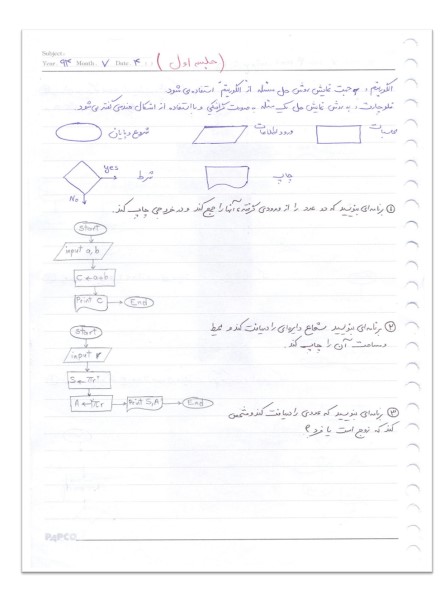 Subject:
Year. 94 Month. 7 Date. 4 (جلسه اول)
الگوریتم: جهت نمایش روش حل مسئله از الگوریتم استفاده می شود.
فلوچارت: به روش نمایش حل یک مسئله به صورت گرافیکی و با استفاده از اشکال هندسی گفته می شود
محاسبات
ورود اطلاعات
شروع و پایان
چاپ
شرط
yes
No
① برنامه ای بنویسید که دو عدد را از ورودی گرفته، آنها را جمع کند و در خروجی چاپ کند.
Start
input a, b
C ← a+b
Print C
End
② برنامه ای بنویسید شعاع دایره ای را دریافت کند و محیط
و مساحت آن را چاپ کند.
Start
input r
S ← πr²
A ← 2πr
Print S,A
End
③ برنامه ای بنویسید که عددی را دریافت کند و مشخص
کند که زوج است یا فرد؟
PAPCO